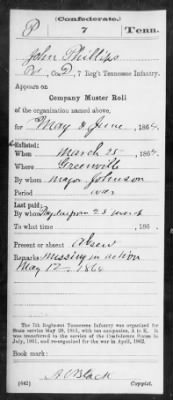 (Confederate.)
P 7 Tenn.
John Phillips
Co. D, 7 Reg't Tennessee Infantry.
Appears on
Company Muster Roll
of the organization named above,
for May & June, 1864.
Enlisted:
When March 25, 1864.
Where Greenville
By whom Major Johnson
Period war
Last paid:
By whom
To what time , 186 .
Present or absent Absent
Remarks: Missing in action
May 12, 1864
The 7th Regiment Tennessee Infantry was organized for
State service May 25, 1861, with ten companies, A to K. It
was transferred to the service of the Confederate States
in July, 1861, and reorganized for the war in April, 1862.
Book mark:
(642) Copyist.